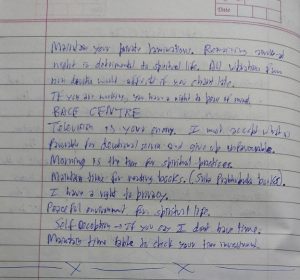 Date
Maintain your private Remaining
night is detrimental to spiritual life. All vibrations from
non devotee would if you chant late.
If you are working, you have a right to peace of mind.
BACE CENTRE
Television is your enemy. I must accept what is
favourable for devotional service and give up unfavourable.
Morning is the time for spiritual practices.
Maintain time for reading books. (Srila Prabhupada books).
I have a right to privacy.
Peaceful environment for spiritual life.
Self Deception → If you say I dont have time.
Maintain time table to check your time investment.